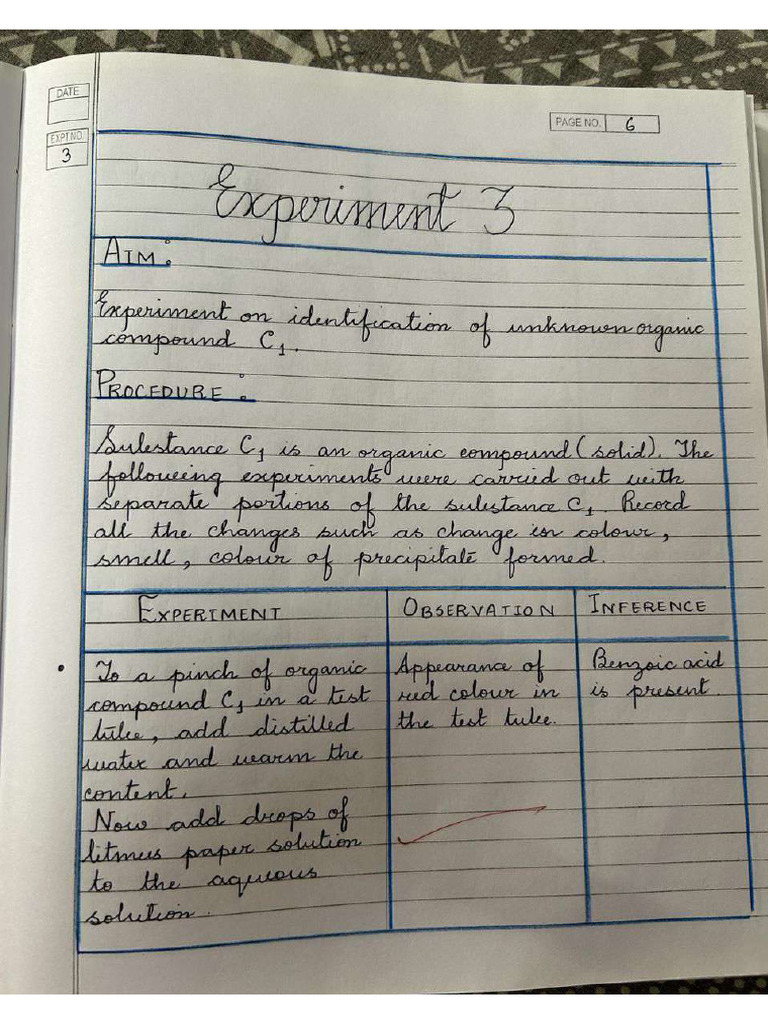 DATE
EXPT NO.
3
PAGE NO. 6
Experiment 3
AIM :
Experiment on identification of unknown organic
compound C₁.
PROCEDURE :
Substance C₁ is an organic compound (solid). The
following experiments were carried out with
separate portions of the substance C₁. Record
all the changes such as change in colour,
smell, colour of precipitate formed.
EXPERIMENT OBSERVATION INFERENCE
• To a pinch of organic
compound C₁ in a test
tube, add distilled
water and warm the
content.
Now add drops of
litmus paper solution
to the aqueous
solution.
Appearance of
red colour in
the test tube.
Benzoic acid
is present.